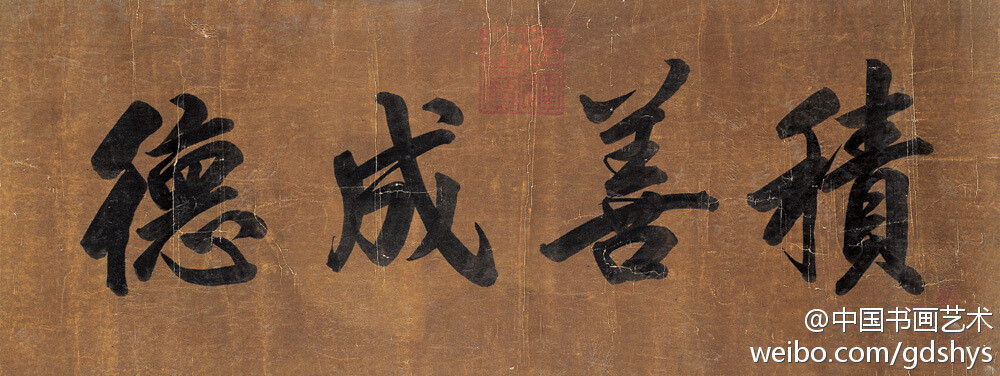 積善成德
@中国书画艺术
weibo.com/gdshys